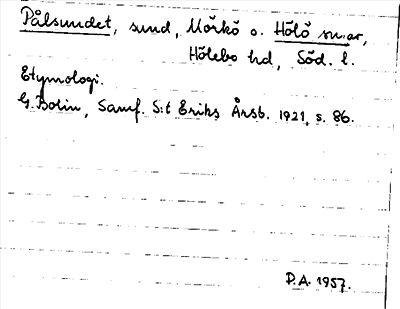 Pålsundet, sund, Mörkö o. Hölö snar,
Hölebo hd, Söd. l.
Etymologi.
G. Bolin, Samf. S:t Eriks Årsb. 1921, s. 86.
D.A. 1957.